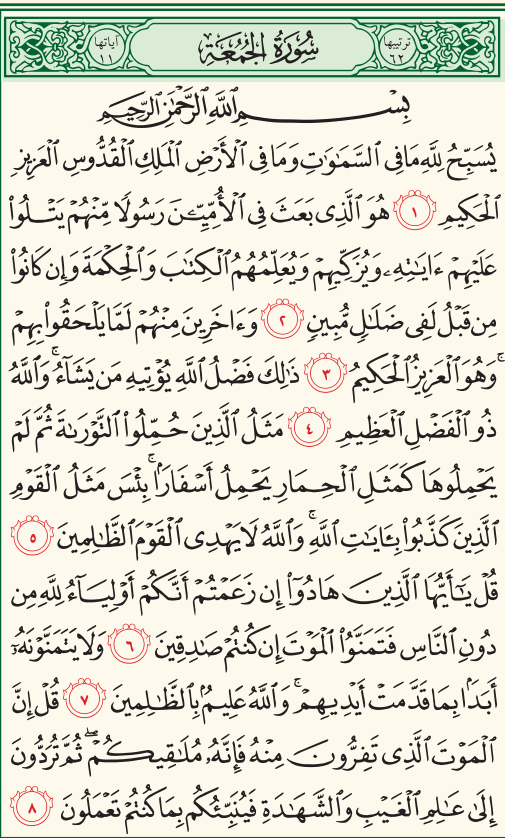 ترتيبها ٦٢ سُورَةُ الجُمُعَة آياتها ١١
بِسْمِ اللَّهِ الرَّحْمَٰنِ الرَّحِيمِ
يُسَبِّحُ لِلَّهِ مَا فِي ٱلسَّمَٰوَٰتِ وَمَا فِي ٱلْأَرْضِ ٱلْمَلِكِ ٱلْقُدُّوسِ ٱلْعَزِيزِ
ٱلْحَكِيمِ ١ هُوَ ٱلَّذِى بَعَثَ فِى ٱلْأُمِّيِّـۧنَ رَسُولًا مِّنْهُمْ يَتْلُوا۟
عَلَيْهِمْ ءَايَٰتِهِۦ وَيُزَكِّيهِمْ وَيُعَلِّمُهُمُ ٱلْكِتَٰبَ وَٱلْحِكْمَةَ وَإِن كَانُوا۟
مِن قَبْلُ لَفِى ضَلَٰلٍ مُّبِينٍ ٢ وَءَاخَرِينَ مِنْهُمْ لَمَّا يَلْحَقُوا۟ بِهِمْ
وَهُوَ ٱلْعَزِيزُ ٱلْحَكِيمُ ٣ ذَٰلِكَ فَضْلُ ٱللَّهِ يُؤْتِيهِ مَن يَشَآءُ ۚ وَٱللَّهُ
ذُو ٱلْفَضْلِ ٱلْعَظِيمِ ٤ مَثَلُ ٱلَّذِينَ حُمِّلُوا۟ ٱلتَّوْرَىٰةَ ثُمَّ لَمْ
يَحْمِلُوهَا كَمَثَلِ ٱلْحِمَارِ يَحْمِلُ أَسْفَارًۢا ۚ بِئْسَ مَثَلُ ٱلْقَوْمِ
ٱلَّذِينَ كَذَّبُوا۟ بِـَٔايَٰتِ ٱللَّهِ ۚ وَٱللَّهُ لَا يَهْدِى ٱلْقَوْمَ ٱلظَّٰلِمِينَ ٥
قُلْ يَٰٓأَيُّهَا ٱلَّذِينَ هَادُوٓا۟ إِن زَعَمْتُمْ أَنَّكُمْ أَوْلِيَآءُ لِلَّهِ مِن
دُونِ ٱلنَّاسِ فَتَمَنَّوُا۟ ٱلْمَوْتَ إِن كُنتُمْ صَٰدِقِينَ ٦ وَلَا يَتَمَنَّوْنَهُۥٓ
أَبَدًۢا بِمَا قَدَّمَتْ أَيْدِيهِمْ ۚ وَٱللَّهُ عَلِيمٌۢ بِٱلظَّٰلِمِينَ ٧ قُلْ إِنَّ
ٱلْمَوْتَ ٱلَّذِى تَفِرُّونَ مِنْهُ فَإِنَّهُۥ مُلَٰقِيكُمْ ۖ ثُمَّ تُرَدُّونَ
إِلَىٰ عَٰلِمِ ٱلْغَيْبِ وَٱلشَّهَٰدَةِ فَيُنَبِّئُكُم بِمَا كُنتُمْ تَعْمَلُونَ ٨